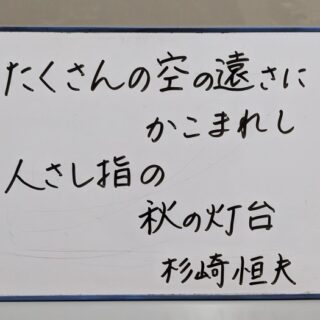 たくさんの空の遠さに
かこまれし
人さし指の
秋の灯台
杉崎恒夫